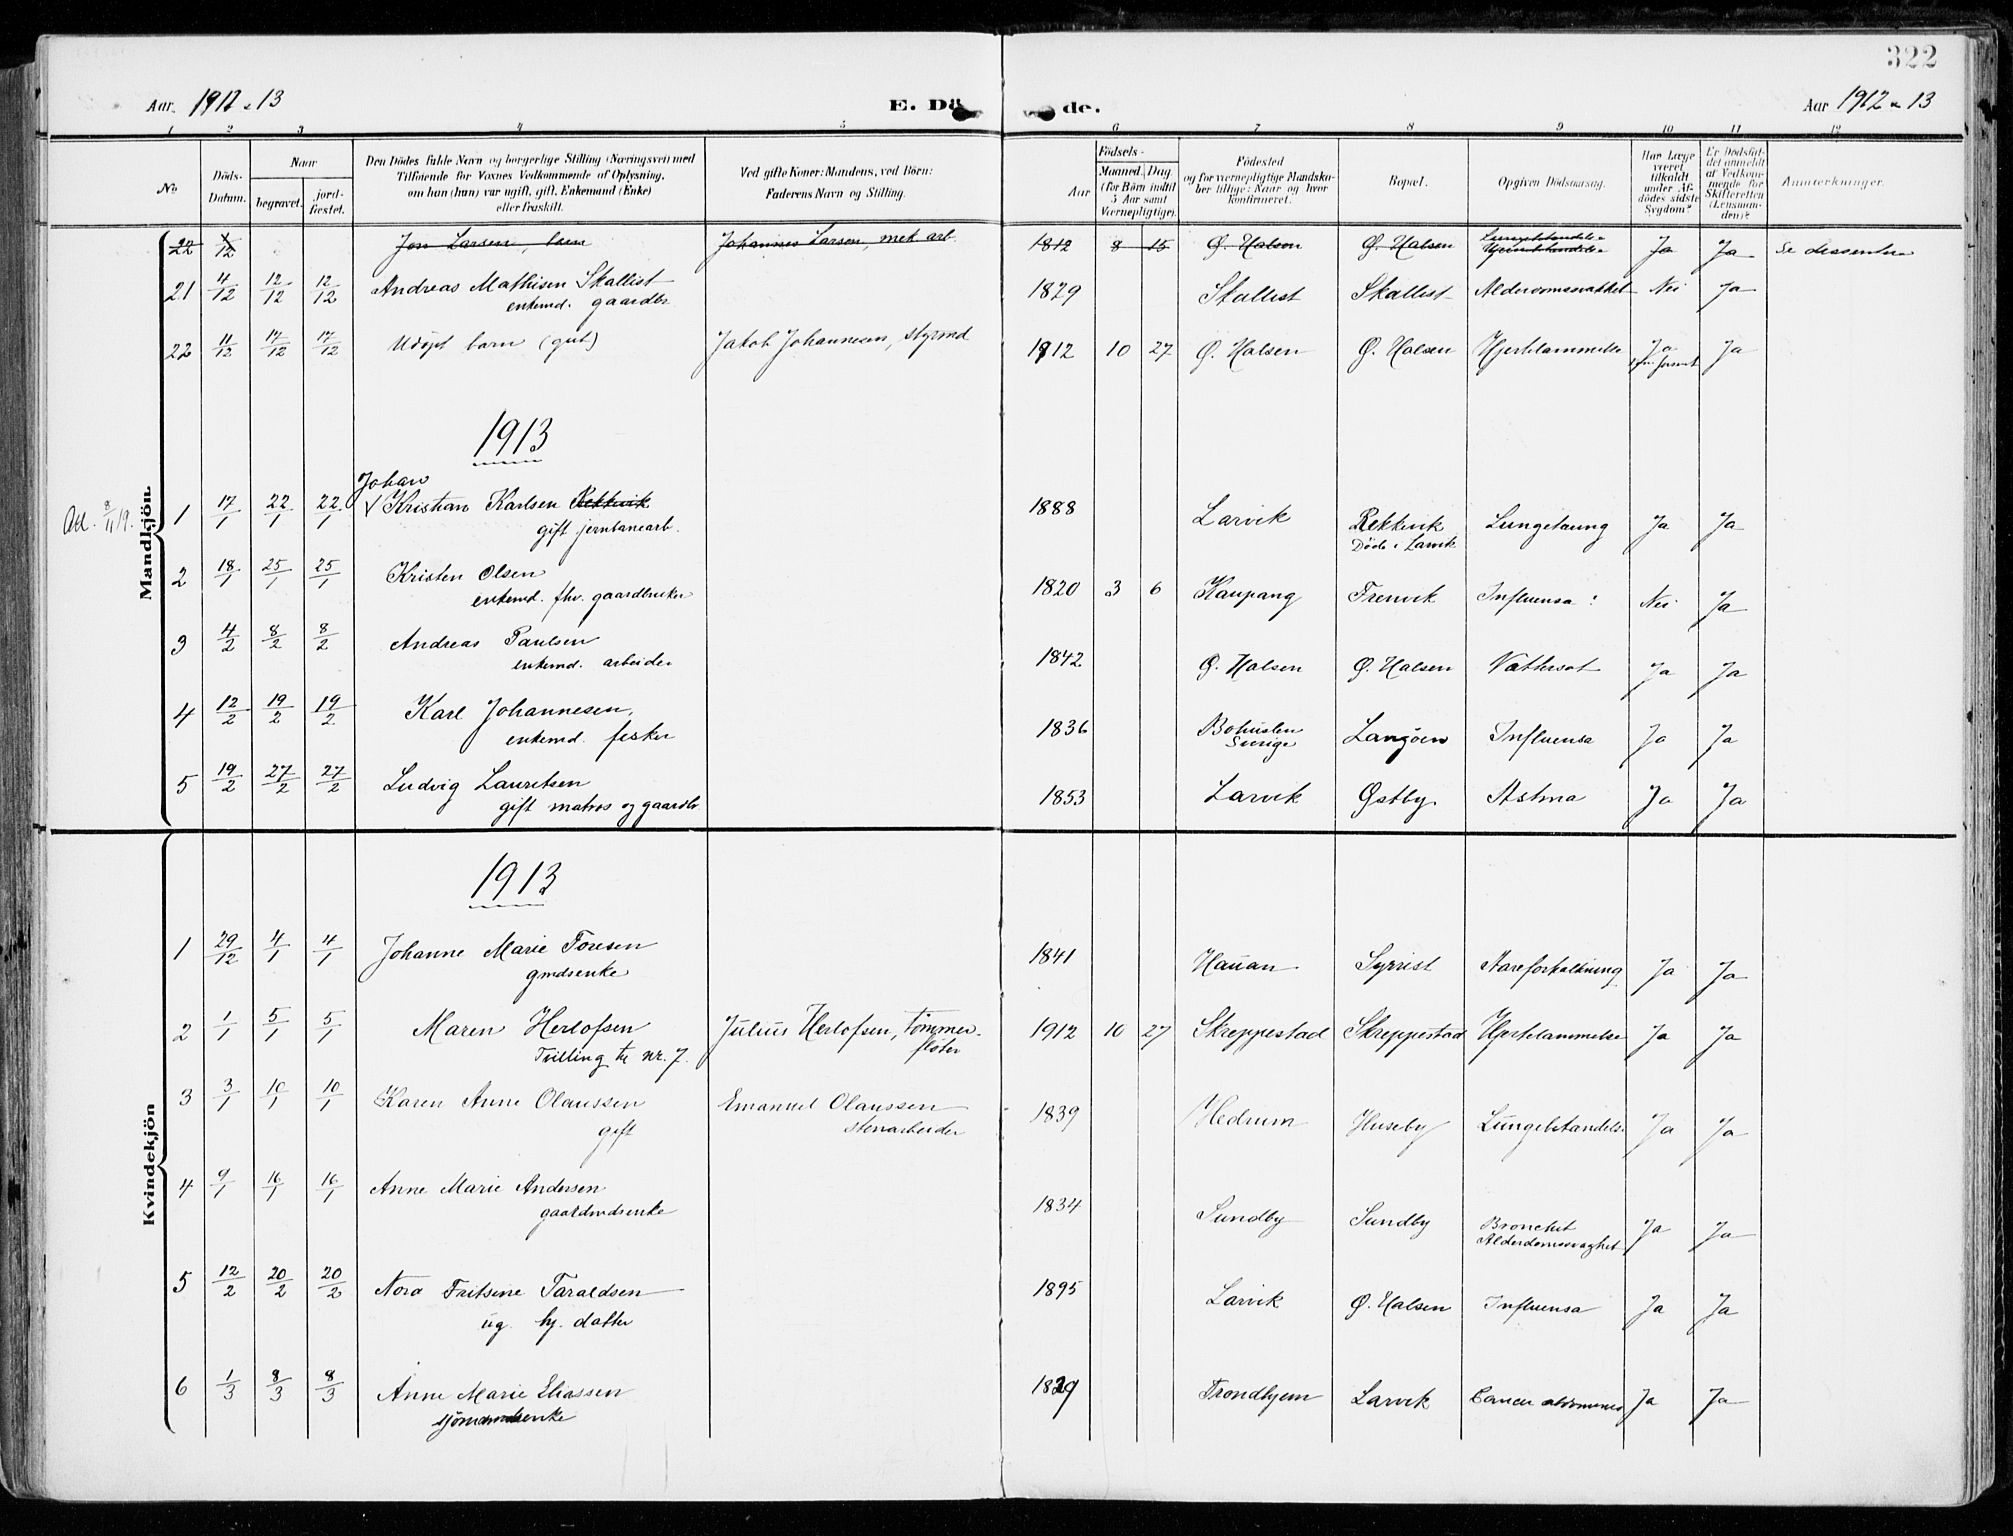 322
Aar 1912 & 13 E. Dö de. Aar 1912 & 13
1 2 3 4 5 6 7 8 9 10 11 12
No
Döds-Datum.
Naar
begravet.
jord-fæstet.
Den Dödes fulde Navn og borgerlige Stilling (Næringsvei) med
Tilföiende for Voxnes Vedkommende af Oplysning,
om han (hun) var ugift, gift, Enkemand (Enke)
eller fraskilt.
Ved gifte Koner: Mandens, ved Börn:
Faderens Navn og Stilling.
Aar
Födsels-
Maaned. Dag.
(for Börn indtil
5 Aar samt
Værnepligtige).
Födested
og for værnepligtige Mandska-
ber tillige: Naar og hvor
konfirmeret.
Bopæl.
Opgiven Dödsaarsag.
Har Læge
været
tilkaldt
under Af-
dödes sidste
Sygdom?
Er Dödsfal-
det anmeldt
af Vedkom-
mende for
Skifteretten
(Lensman-
den)?
Anmerkninger.
Mandkjön.
22 /12 Jon Larsen, barn Johannes Larsen, mek arb. 1812 8 15 Ø. Halsen Ø. Halsen Lungebetændelse Ja Ja Se dissentere
21 4/12 12/12 12/12 Andreas Mathisen Skallist 1829 Skallist Skallist Alderdomssvakhet Nei Ja
enkemd. gaardbr.
22 11/12 17/12 17/12 Udøpt barn (gut) Jakob Johannesen, styrmd 1912 10 27 Ø. Halsen Ø. Halsen Hjertelammelse Ja Ja
1913
Att. 8/11 19.
Johan
1 17/1 22/1 22/1 Kristian Karlsen Rekkevik 1888 Larvik Rekkevik Lungetæring Ja Ja
gift jernbanearb. Døde i Larvik
2 18/1 25/1 25/1 Kristen Olsen 1820 3 6 Kaupang Frenvik Influensa Nei Ja
enkemd. fhv. gaardbruker
3 4/2 8/2 8/2 Andreas Paulsen 1842 Ø. Halsen Ø. Halsen Vattersot Ja Ja
enkemd. arbeider
4 12/2 19/2 19/2 Karl Johannesen, 1836 Bohuslen Langöen Influensa Ja Ja
enkemd. fisker Sverige
5 19/2 27/2 27/2 Ludvig Lauritsen 1853 Larvik Østby. Astma Ja Ja
gift matros og gaardbr
Kvindekjön
1913
1 29/12 4/1 4/1 Johanne Marie Toresen 1841 Hauan Syrrist Aareforkalkning Ja Ja
gmdsenke
2 1/1 5/1 5/1 Maren Herlofsen Julius Herlofsen, tømmer- 1912 10 27 Skreppestad Skreppestad Hjertelammelse Ja Ja
Tvilling til nr. 7. fløter
3 3/1 10/1 10/1 Karen Anne Olaussen Emanuel Olaussen 1839 Hedrum Huseby Lungebetændels. Ja Ja
gift stenarbeider
4 9/1 16/1 16/1 Anne Marie Andersen 1834 Sundby Sundby Bronchit Ja Ja
gaardmdsenke Alderdomssvaghet
5 12/2 20/2 20/2 Nora Fritsine Taraldsen 1895 Larvik Ø. Halsen Influensa Ja Ja
ug. hj. datter
6 1/3 8/3 8/3 Anne Marie Eliassen 1829 Trondhjem Larvik Cancer abdomines Ja Ja
sjömandsenke